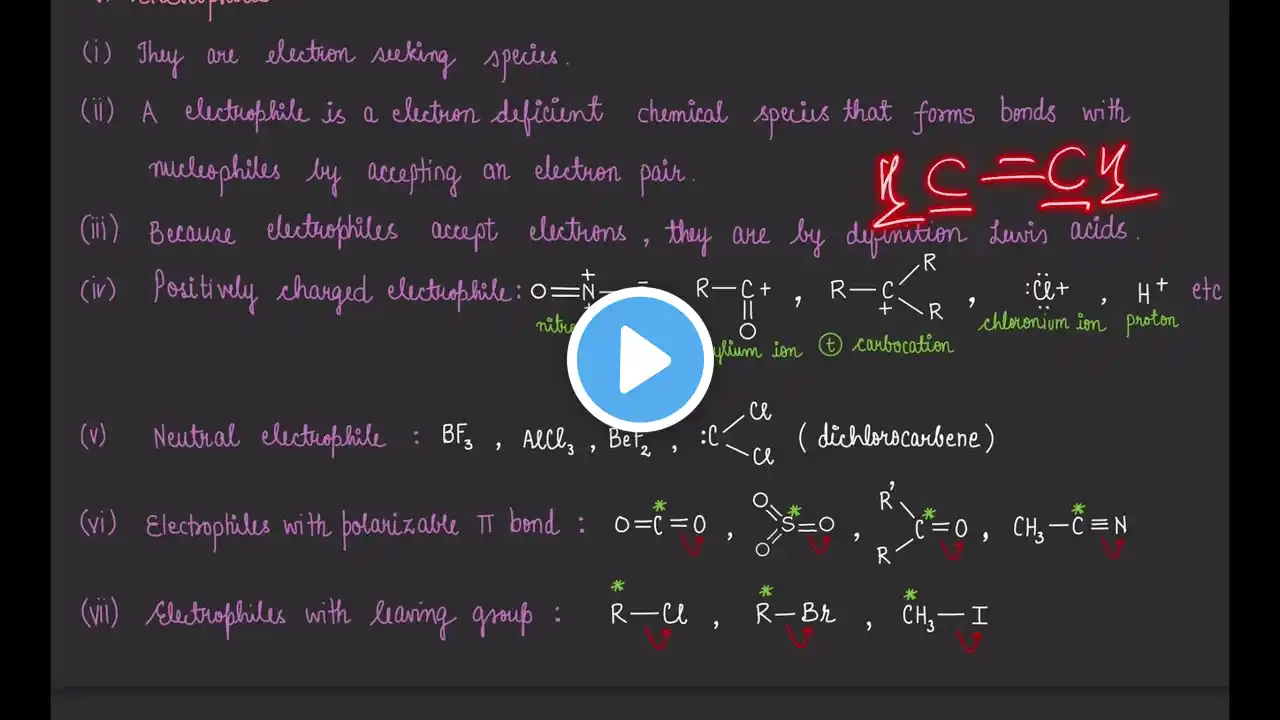 (i) They are electron seeking species.
H C = C H
(ii) A electrophile is a electron deficient chemical species that forms bonds with
nucleophiles by accepting an electron pair.
(iii) Because electrophiles accept electrons, they are by definition Lewis acids.
(iv) Positively charged electrophile: O=N , R—C+ , R—C , :Cl+ , H+ etc
O R R
+
chloronium ion proton
ylium ion (t) carbocation
(v) Neutral electrophile : BF3 , AlCl3 , BeF2 , :C Cl Cl (dichlorocarbene)
(vi) Electrophiles with polarizable π bond : O=C=O , O S=O O , R' R C=O , CH3—C≡N
(vii) Electrophiles with leaving group : R—Cl , R—Br , CH3—I